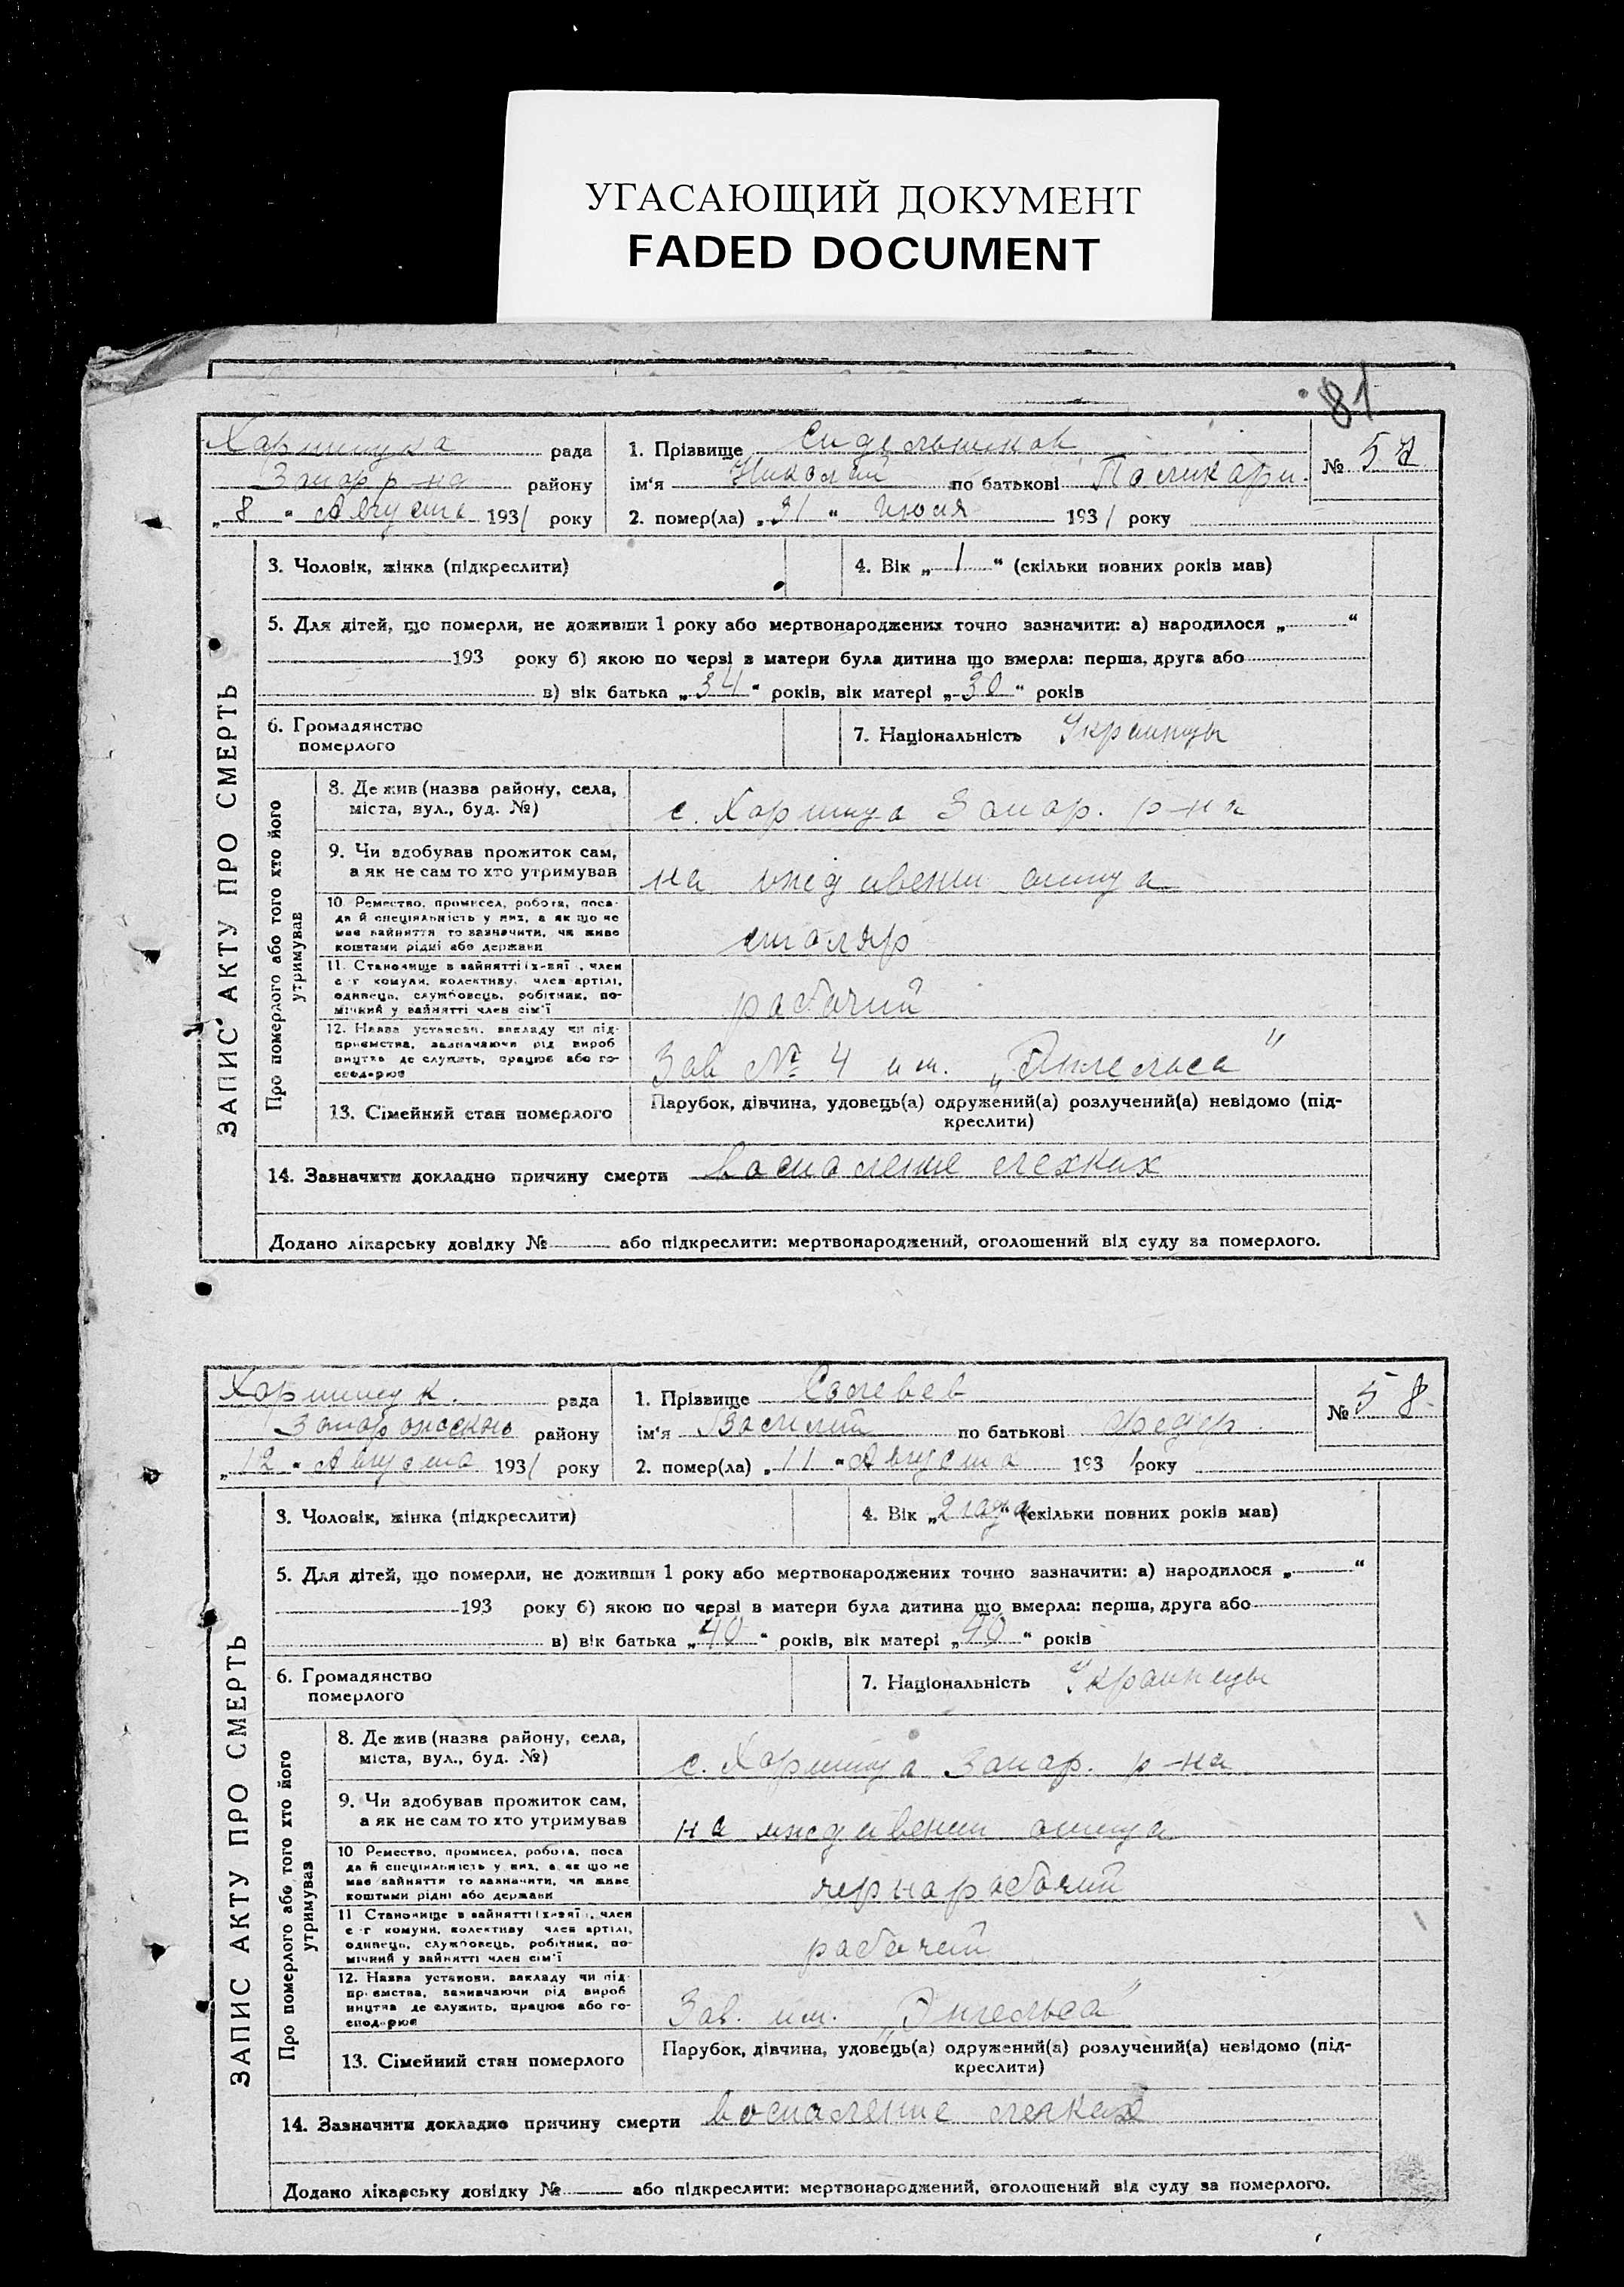 УГАСАЮЩИЙ ДОКУМЕНТ
FADED DOCUMENT
81
рада
Запор р-на району
„8“ Августа 1931 року
1. Прізвище Сидельников
ім‘я Николай по батькові Поликарп.
2. помер(ла) „31“ Июля 1931 року
№ 57
ЗАПИС АКТУ ПРО СМЕРТЬ
3. Чоловік, жінка (підкреслити)
4. Вік „1“ (скільки повних років мав)
5. Для дітей, що померли, не доживши 1 року або мертвонароджених точно зазначити: а) народилося „ “
193 року б) якою по черзі в матери була дитина що вмерла: перша, друга або
в) вік батька „34“ років, вік матері „30“ років
6. Громадянство
померлого
7. Національність Украинцы
Про померлого або того хто його
утримував
8. Де жив (назва району, села,
міста, вул., буд. №)
с. Хортица Запор. р-на
9. Чи здобував прожиток сам,
а як не сам то хто утримував
на иждивении отца
10 Ремество, промисел, робота, поса-
да й спеціяльність у них, а як що не
має зайняття то зазначити, чи живе
коштами рідні або держави
столяр
11. Становище в зайнятті їх-неї, член
с-г комуни, колективу, член артілі,
одинець, службовець, робітник, по-
мічний у зайнятті член сім'ї
рабочий
12. Назва установи, закладу чи під-
приємства, зазначаючи рід вироб
ництва де служить, працює або го-
сподарює
Зав № 4 им. „Энгельса“
13. Сімейний стан померлого
Парубок, дівчина, удовець(а) одружений(а) розлучений(а) невідомо (під-
креслити)
14. Зазначити докладно причину смерти воспаление легких
Додано лікарську довідку № або підкреслити: мертвонароджений, оголошений від суду за померлого.
рада
району
„12“ Августа 1931 року
1. Прізвище
ім‘я Василий по батькові Федор.
2. помер(ла) „11“ Августа 1931 року
№ 58
ЗАПИС АКТУ ПРО СМЕРТЬ
3. Чоловік, жінка (підкреслити)
4. Вік „2 года“ (скільки повних років мав)
5. Для дітей, що померли, не доживши 1 року або мертвонароджених точно зазначити: а) народилося „ “
193 року б) якою по черзі в матери була дитина що вмерла: перша, друга або
в) вік батька „40“ років, вік матері „40“ років
6. Громадянство
померлого
7. Національність Украинцы
Про померлого або того хто його
утримував
8. Де жив (назва району, села,
міста, вул., буд. №)
с. Хортица Запор. р-на
9. Чи здобував прожиток сам,
а як не сам то хто утримував
на иждивении отца
10 Ремество, промисел, робота, поса
да й спеціяльність у них, а як що не
має зайняття то зазначити, чи живе
коштами рідні або держави
чернорабочий
11 Становище в зайнятті їх-неї, член
с-г комуни, колективу член артілі,
одинець, службовець, робітник, по-
мічний у зайнятті член сім'ї
рабочий
12. Назва установи, закладу чи під-
приємства, зазначаючи рід вироб
ництва де служить, працює або го-
сподарює
Зав. им. „Энгельса“
13. Сімейний стан померлого
Парубок, дівчина, удовець(а) одружений(а) розлучений(а) невідомо (під-
креслити)
14. Зазначити докладно причину смерти воспаление легких
Додано лікарську довідку № або підкреслити: мертвонароджений, оголошений від суду за померлого.